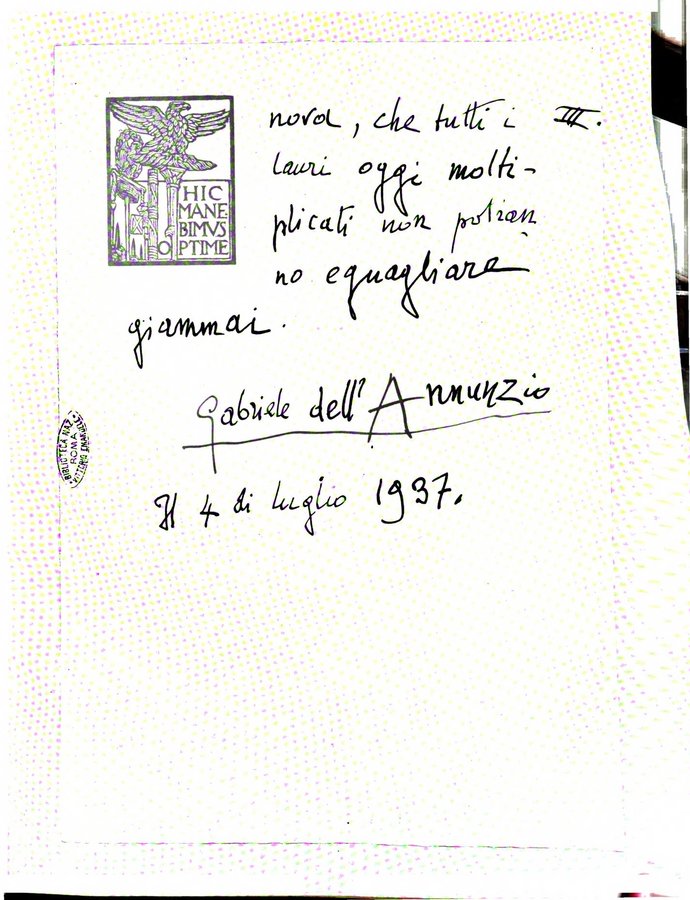 HIC
MANE-
BIMVS
OPTIME
III.
nord, che tutti i
lauri oggi molti-
plicati non potran
no eguagliare
giammai.
Gabriele dell'Annunzio
Il 4 di luglio 1937.
BIBLIOTECA NAZ.
ROMA
VITTORIO EMANUELE